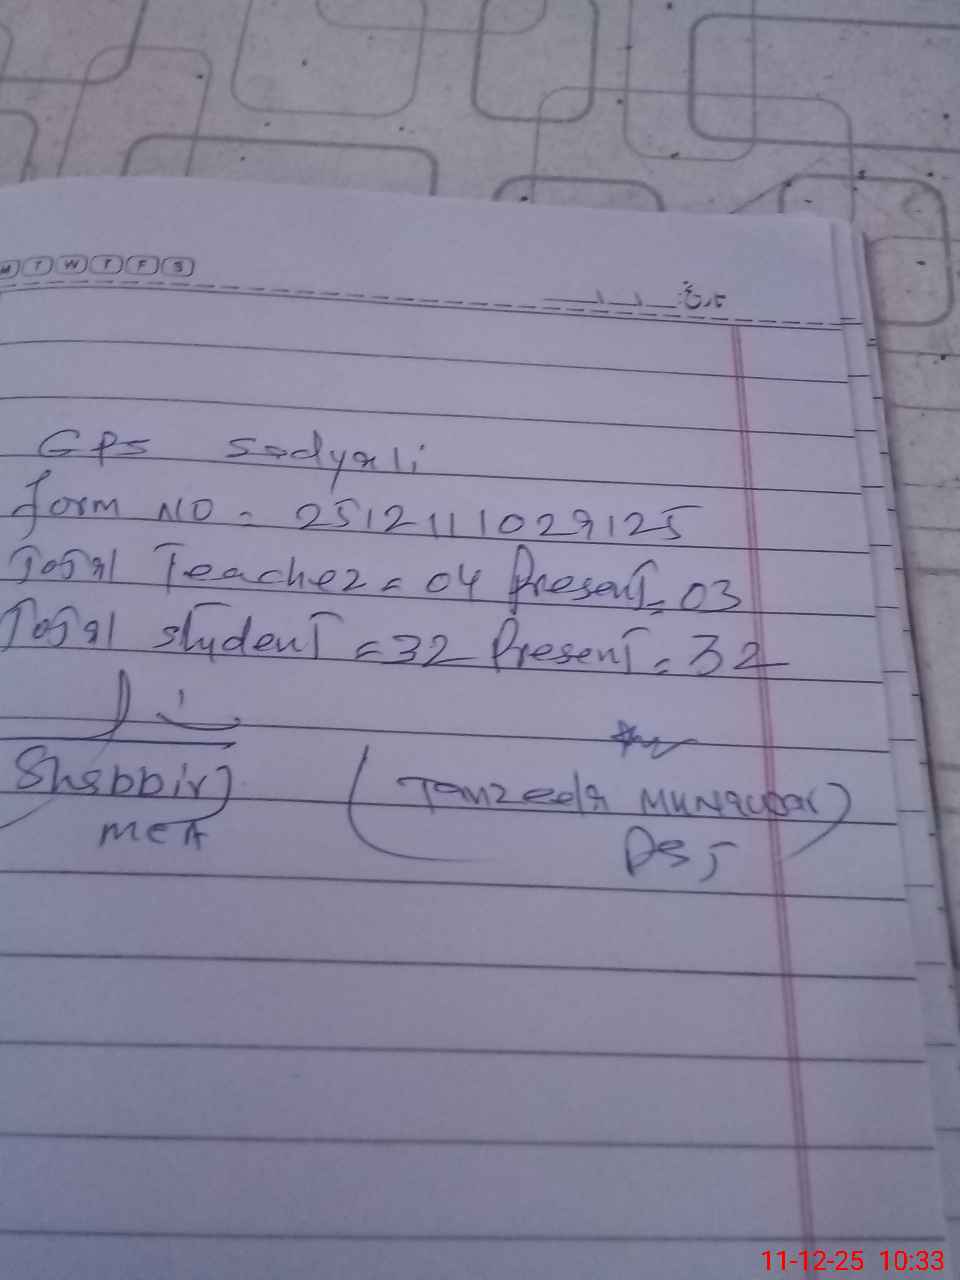 M T W T F S
تاریخ
GPS Sadyali
form NO = 2512111029125
Total Teacher = 04 Present = 03
Total student = 32 Present = 32
Shabbir)
MEA
(Tanzeela Munawar)
PST
11-12-25 10:33